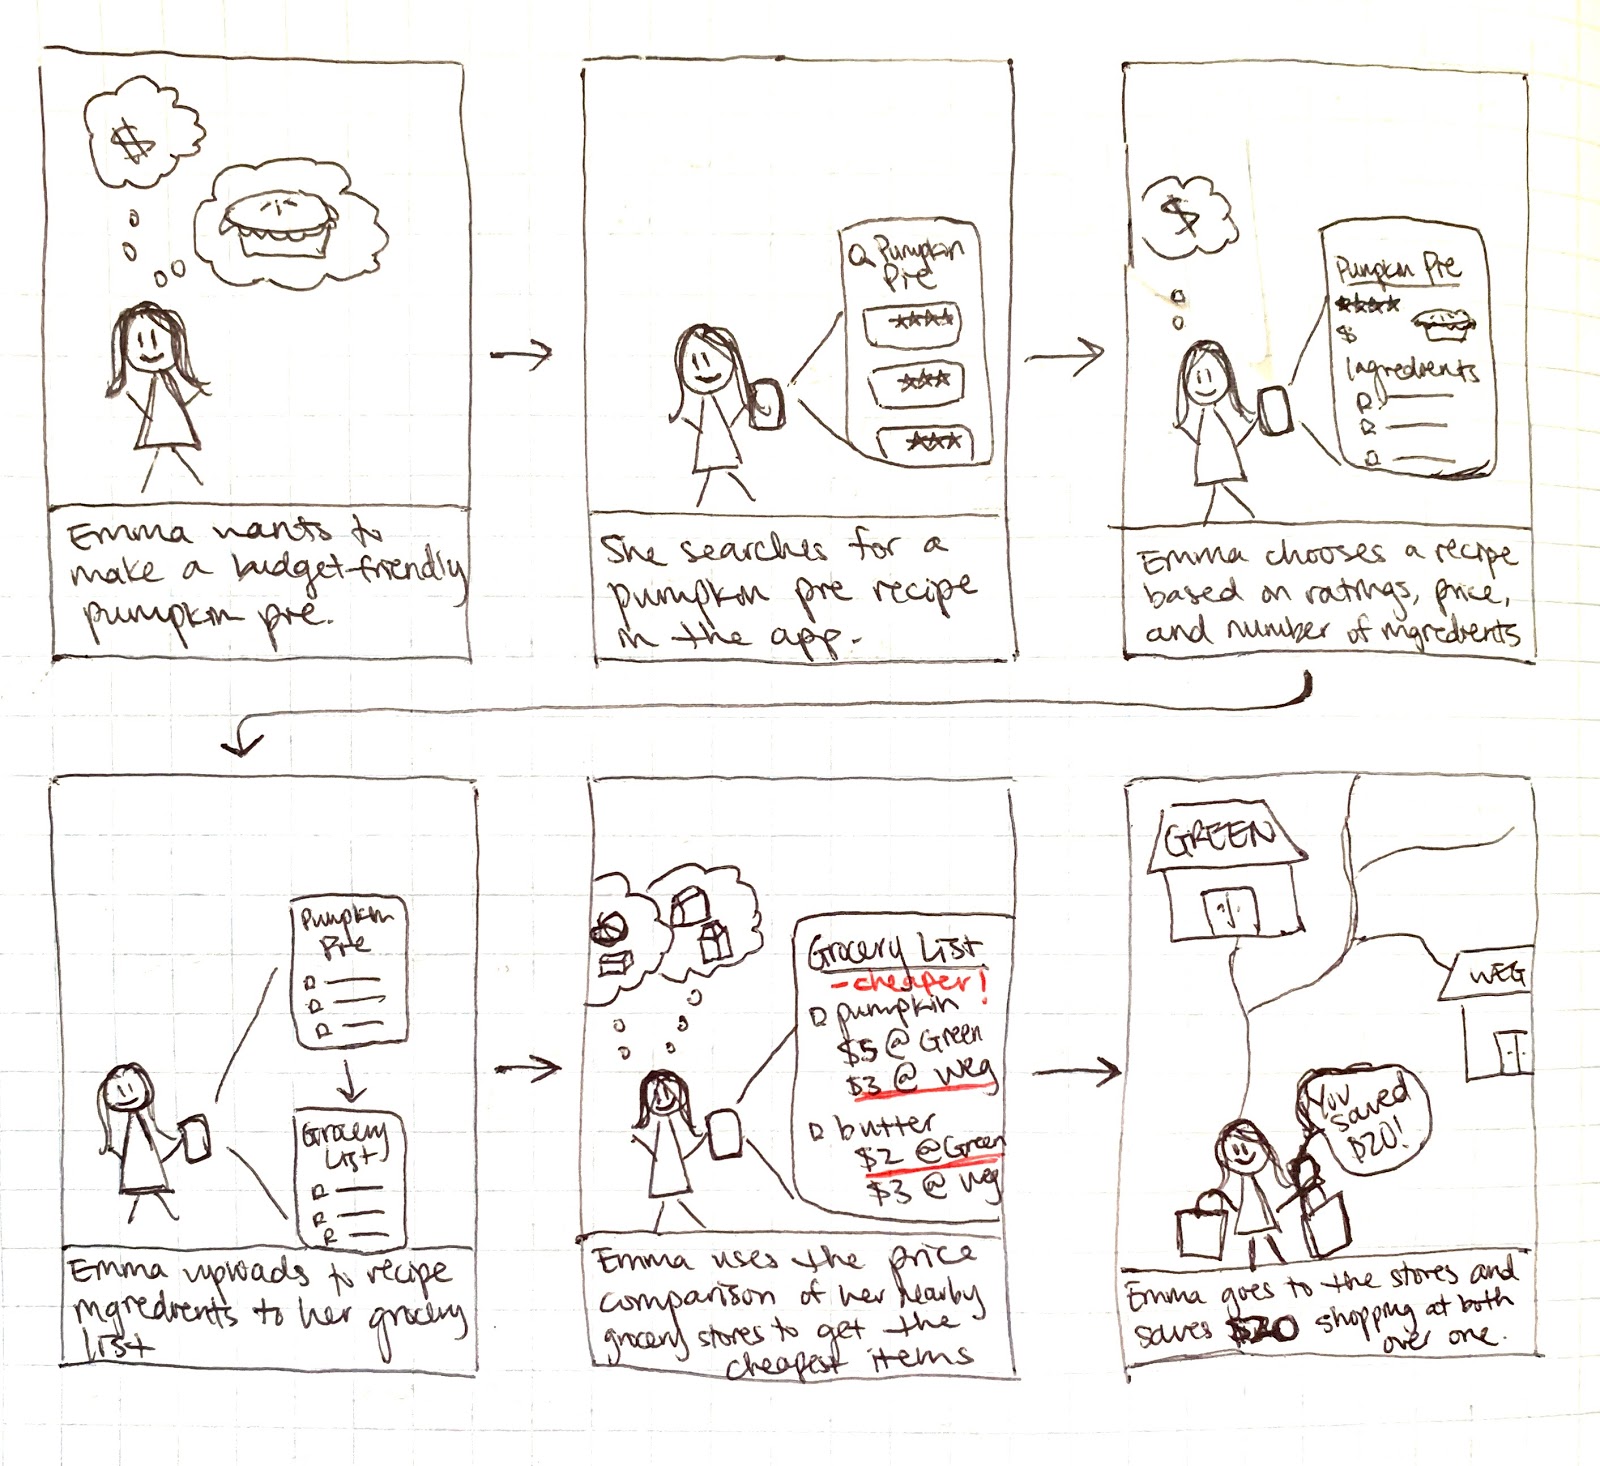 $
Emma wants to
make a budget-friendly
pumpkin pie.
Pumpkin
Pie
She searches for a
pumpkin pie recipe
in the app.
$
Pumpkin Pie
$
Ingredients
Emma chooses a recipe
based on ratings, price,
and number of ingredients
Pumpkin
Pie
Grocery
List
Emma uploads to recipe
ingredients to her grocery
list
$
Grocery List
-cheaper!
pumpkin
$5 @ Green
$3 @ Weg
butter
$2 @ Green
$3 @ Weg
Emma uses the price
comparison of her nearby
grocery stores to get the
cheapest items
GREEN
WEG
You
saved
$20!
Emma goes to the stores and
saves $20 shopping at both
over one.